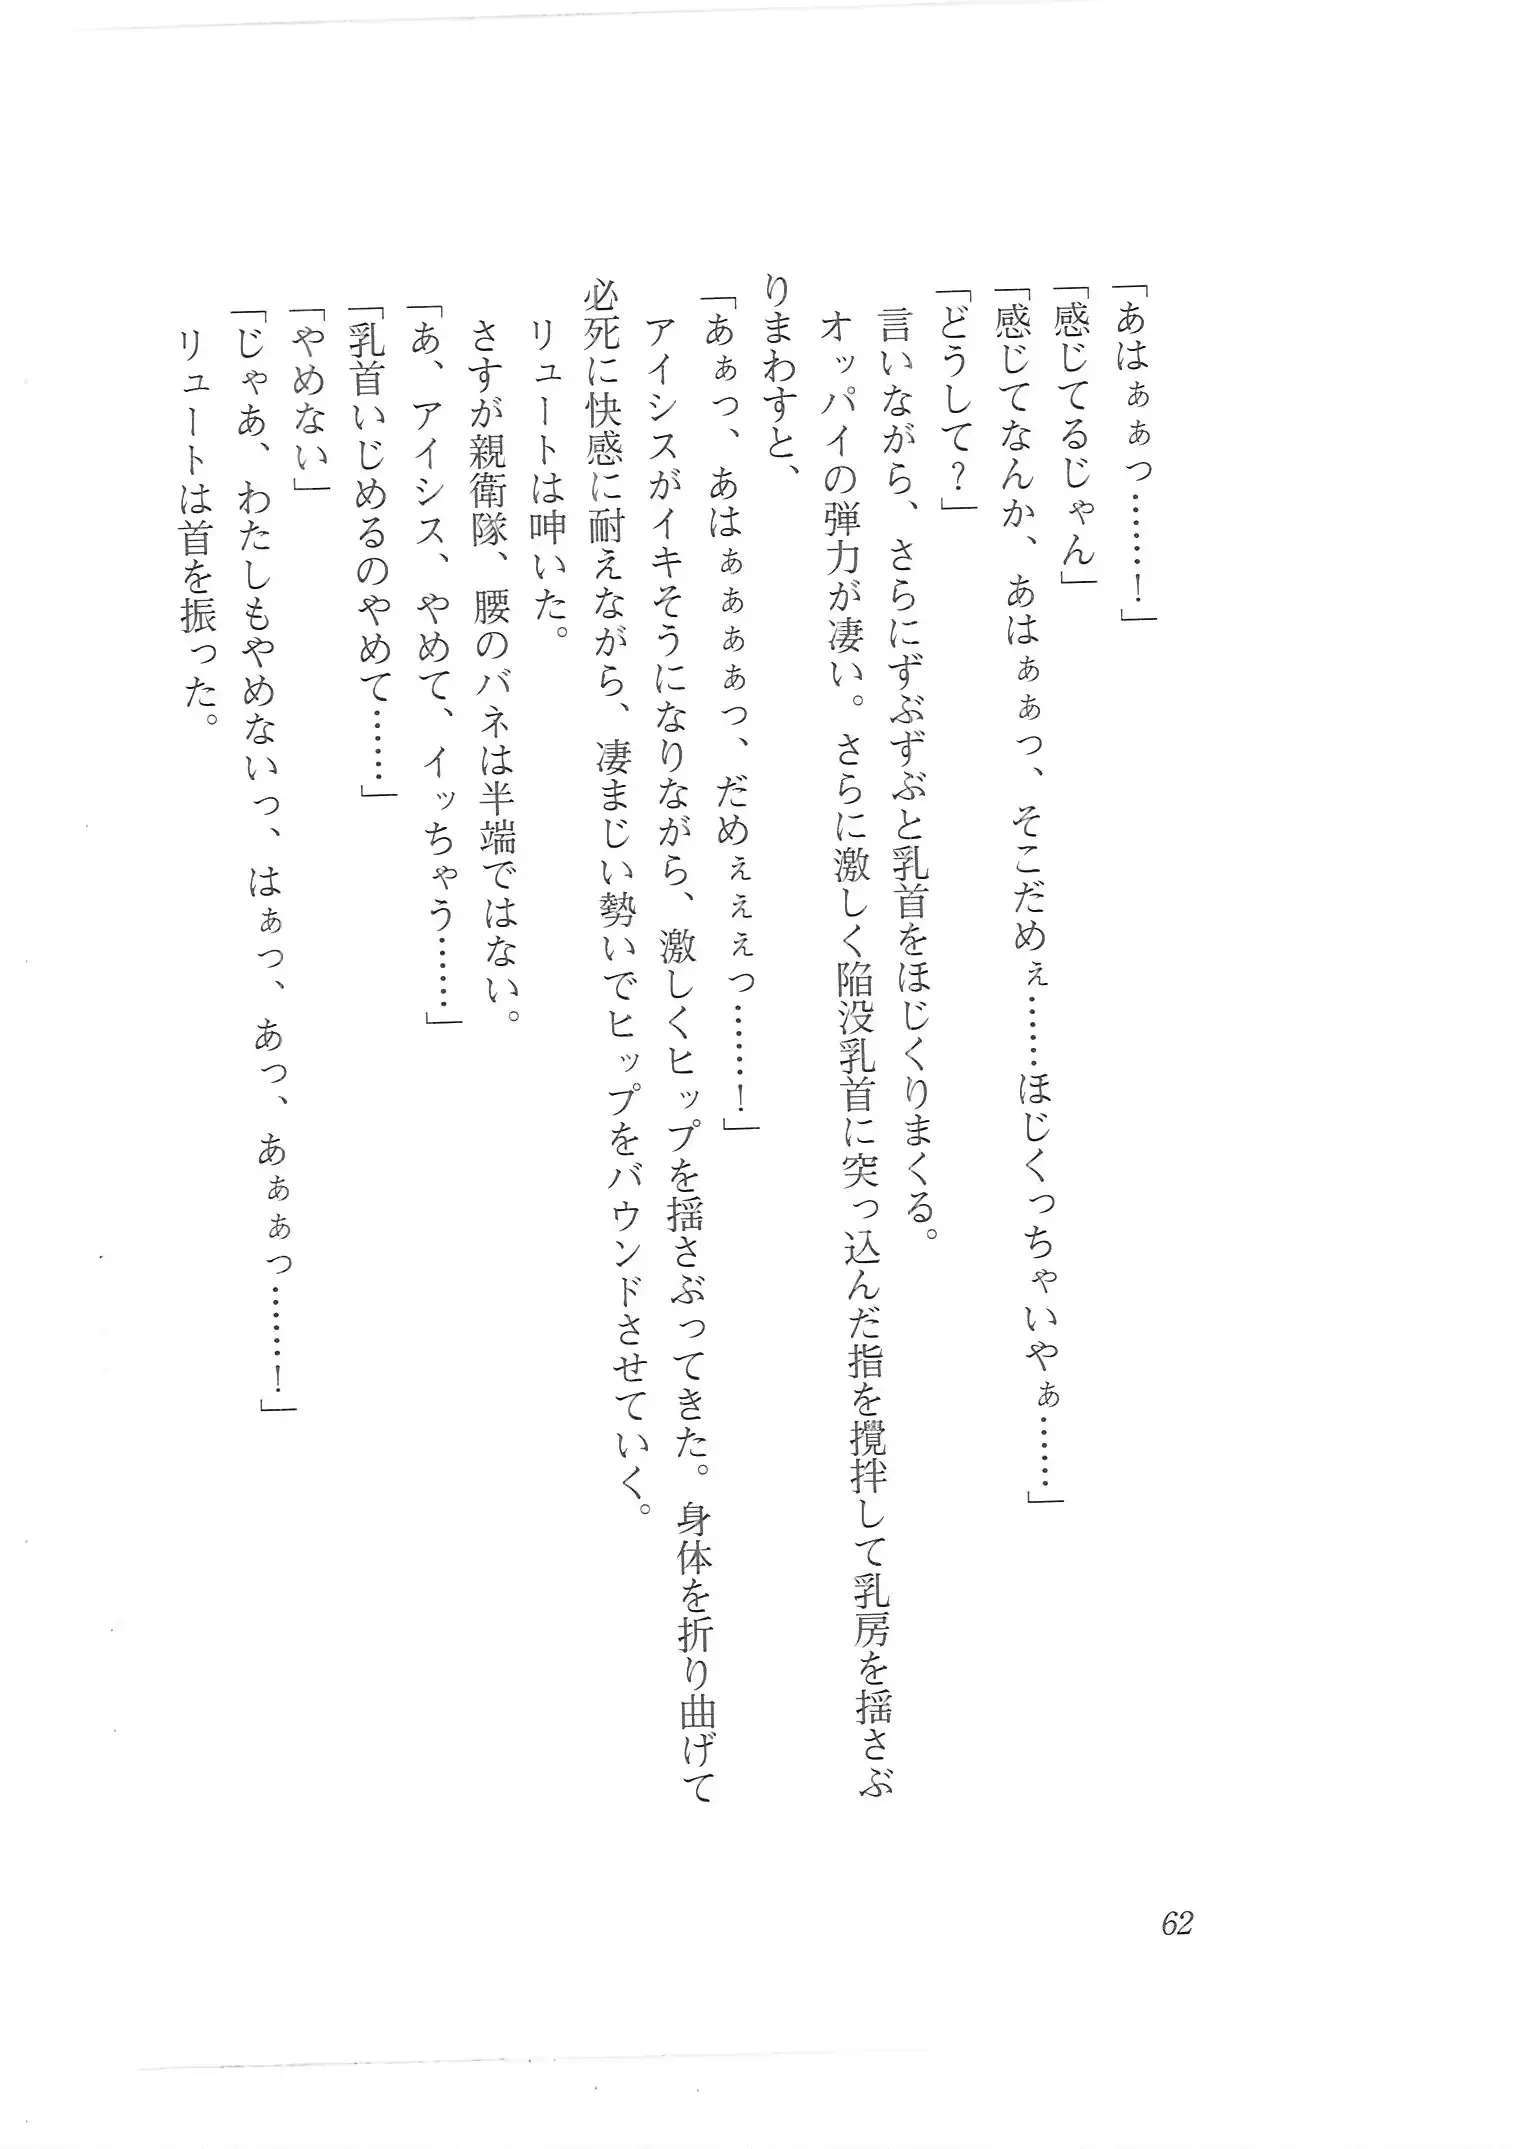 「あはぁぁっ……！」
「感じてるじゃん」
「感じてなんか、あはぁぁっ、そこだめぇ……ほじくっちゃいやぁ……」
「どうして？」
言いながら、さらにずぶずぶと乳首をほじくりまくる。
オッパイの弾力が凄い。さらに激しく陥没乳首に突っ込んだ指を攪拌して乳房を揺さぶ
りまわすと、
「あぁっ、あはぁぁぁぁっ、だめぇぇぇっ……！」
アイシスがイキそうになりながら、激しくヒップを揺さぶってきた。身体を折り曲げて
必死に快感に耐えながら、凄まじい勢いでヒップをバウンドさせていく。
リュートは呻いた。
さすが親衛隊、腰のバネは半端ではない。
「あ、アイシス、やめて、イッちゃう……」
「乳首いじめるのやめて……」
「やめない」
「じゃあ、わたしもやめないっ、はぁっ、あっ、あぁぁっ……！」
リュートは首を振った。
62